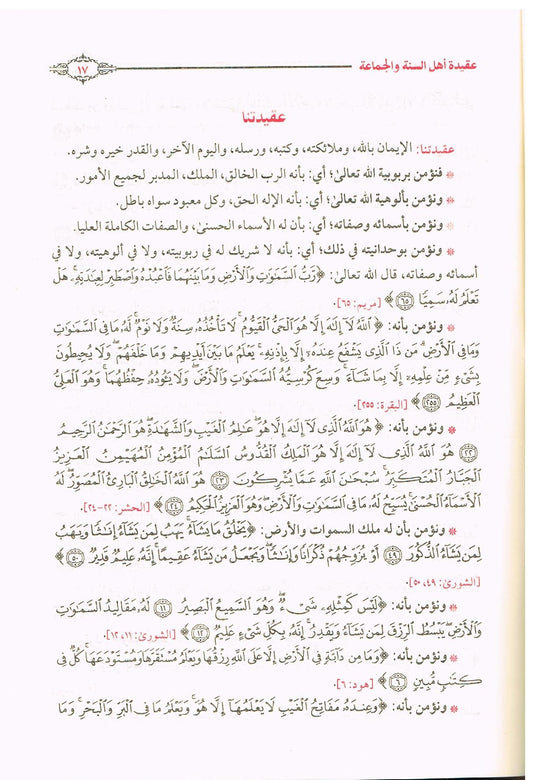 عقيدة أهل السنة والجماعة
١٧
عقيدتنا
عقيدتنا: الإيمان بالله، وملائكته، وكتبه، ورسله، واليوم الآخر، والقدر خيره وشره.
* فنؤمن بربوبية الله تعالى؛ أي: بأنه الرب الخالق، الملك، المدبر لجميع الأمور.
* ونؤمن بألوهية الله تعالى؛ أي: بأنه الإله الحق، وكل معبود سواه باطل.
* ونؤمن بأسمائه وصفاته؛ أي: بأن له الأسماء الحسنى، والصفات الكاملة العليا.
* ونؤمن بوحدانيته في ذلك؛ أي: بأنه لا شريك له في ربوبيته، ولا في ألوهيته، ولا في
أسمائه وصفاته، قال الله تعالى: ﴿رَّبُّ ٱلسَّمَٰوَٰتِ وَٱلْأَرْضِ وَمَا بَيْنَهُمَا فَٱعْبُدْهُ وَٱصْطَبِرْ لِعِبَٰدَتِهِۦ ۚ هَلْ
تَعْلَمُ لَهُۥ سَمِيًّا ٦٥﴾ [مريم: ٦٥].
* ونؤمن بأنه: ﴿ٱللَّهُ لَآ إِلَٰهَ إِلَّا هُوَ ٱلْحَىُّ ٱلْقَيُّومُ ۚ لَا تَأْخُذُهُۥ سِنَةٌ وَلَا نَوْمٌ ۚ لَّهُۥ مَا فِى ٱلسَّمَٰوَٰتِ
وَمَا فِى ٱلْأَرْضِ ۗ مَن ذَا ٱلَّذِى يَشْفَعُ عِندَهُۥٓ إِلَّا بِإِذْنِهِۦ ۚ يَعْلَمُ مَا بَيْنَ أَيْدِيهِمْ وَمَا خَلْفَهُمْ ۖ وَلَا يُحِيطُونَ
بِشَىْءٍ مِّنْ عِلْمِهِۦٓ إِلَّا بِمَا شَآءَ ۚ وَسِعَ كُرْسِيُّهُ ٱلسَّمَٰوَٰتِ وَٱلْأَرْضَ ۖ وَلَا يَـُٔودُهُۥ حِفْظُهُمَا ۚ وَهُوَ ٱلْعَلِىُّ
ٱلْعَظِيمُ ٢٥٥﴾ [البقرة: ٢٥٥].
* ونؤمن بأنه: ﴿هُوَ ٱللَّهُ ٱلَّذِى لَآ إِلَٰهَ إِلَّا هُوَ ۖ عَٰلِمُ ٱلْغَيْبِ وَٱلشَّهَٰدَةِ ۖ هُوَ ٱلرَّحْمَٰنُ ٱلرَّحِيمُ
٢٢ هُوَ ٱللَّهُ ٱلَّذِى لَآ إِلَٰهَ إِلَّا هُوَ ٱلْمَلِكُ ٱلْقُدُّوسُ ٱلسَّلَٰمُ ٱلْمُؤْمِنُ ٱلْمُهَيْمِنُ ٱلْعَزِيزُ
ٱلْجَبَّارُ ٱلْمُتَكَبِّرُ ۚ سُبْحَٰنَ ٱللَّهِ عَمَّا يُشْرِكُونَ ٢٣ هُوَ ٱللَّهُ ٱلْخَٰلِقُ ٱلْبَارِئُ ٱلْمُصَوِّرُ ۖ لَهُ
ٱلْأَسْمَآءُ ٱلْحُسْنَىٰ ۚ يُسَبِّحُ لَهُۥ مَا فِى ٱلسَّمَٰوَٰتِ وَٱلْأَرْضِ ۖ وَهُوَ ٱلْعَزِيزُ ٱلْحَكِيمُ ٢٤﴾ [الحشر: ٢٢-٢٤].
* ونؤمن بأن له ملك السموات والأرض: ﴿يَخْلُقُ مَا يَشَآءُ ۚ يَهَبُ لِمَن يَشَآءُ إِنَٰثًا وَيَهَبُ
لِمَن يَشَآءُ ٱلذُّكُورَ ٤٩ أَوْ يُزَوِّجُهُمْ ذُكْرَانًا وَإِنَٰثًا ۖ وَيَجْعَلُ مَن يَشَآءُ عَقِيمًا ۚ إِنَّهُۥ عَلِيمٌ قَدِيرٌ ٥٠﴾
[الشورى: ٤٩، ٥٠].
* ونؤمن بأنه: ﴿لَيْسَ كَمِثْلِهِۦ شَىْءٌ ۖ وَهُوَ ٱلسَّمِيعُ ٱلْبَصِيرُ ١١ لَهُۥ مَقَالِيدُ ٱلسَّمَٰوَٰتِ
وَٱلْأَرْضِ ۖ يَبْسُطُ ٱلرِّزْقَ لِمَن يَشَآءُ وَيَقْدِرُ ۚ إِنَّهُۥ بِكُلِّ شَىْءٍ عَلِيمٌ ١٢﴾ [الشورى: ١١، ١٢].
* ونؤمن بأنه: ﴿وَمَا مِن دَآبَّةٍ فِى ٱلْأَرْضِ إِلَّا عَلَى ٱللَّهِ رِزْقُهَا وَيَعْلَمُ مُسْتَقَرَّهَا وَمُسْتَوْدَعَهَا ۚ كُلٌّ فِى
كِتَٰبٍ مُّبِينٍ ٦﴾ [هود: ٦].
* ونؤمن بأنه: ﴿وَعِندَهُۥ مَفَاتِحُ ٱلْغَيْبِ لَا يَعْلَمُهَآ إِلَّا هُوَ ۚ وَيَعْلَمُ مَا فِى ٱلْبَرِّ وَٱلْبَحْرِ ۚ وَمَا